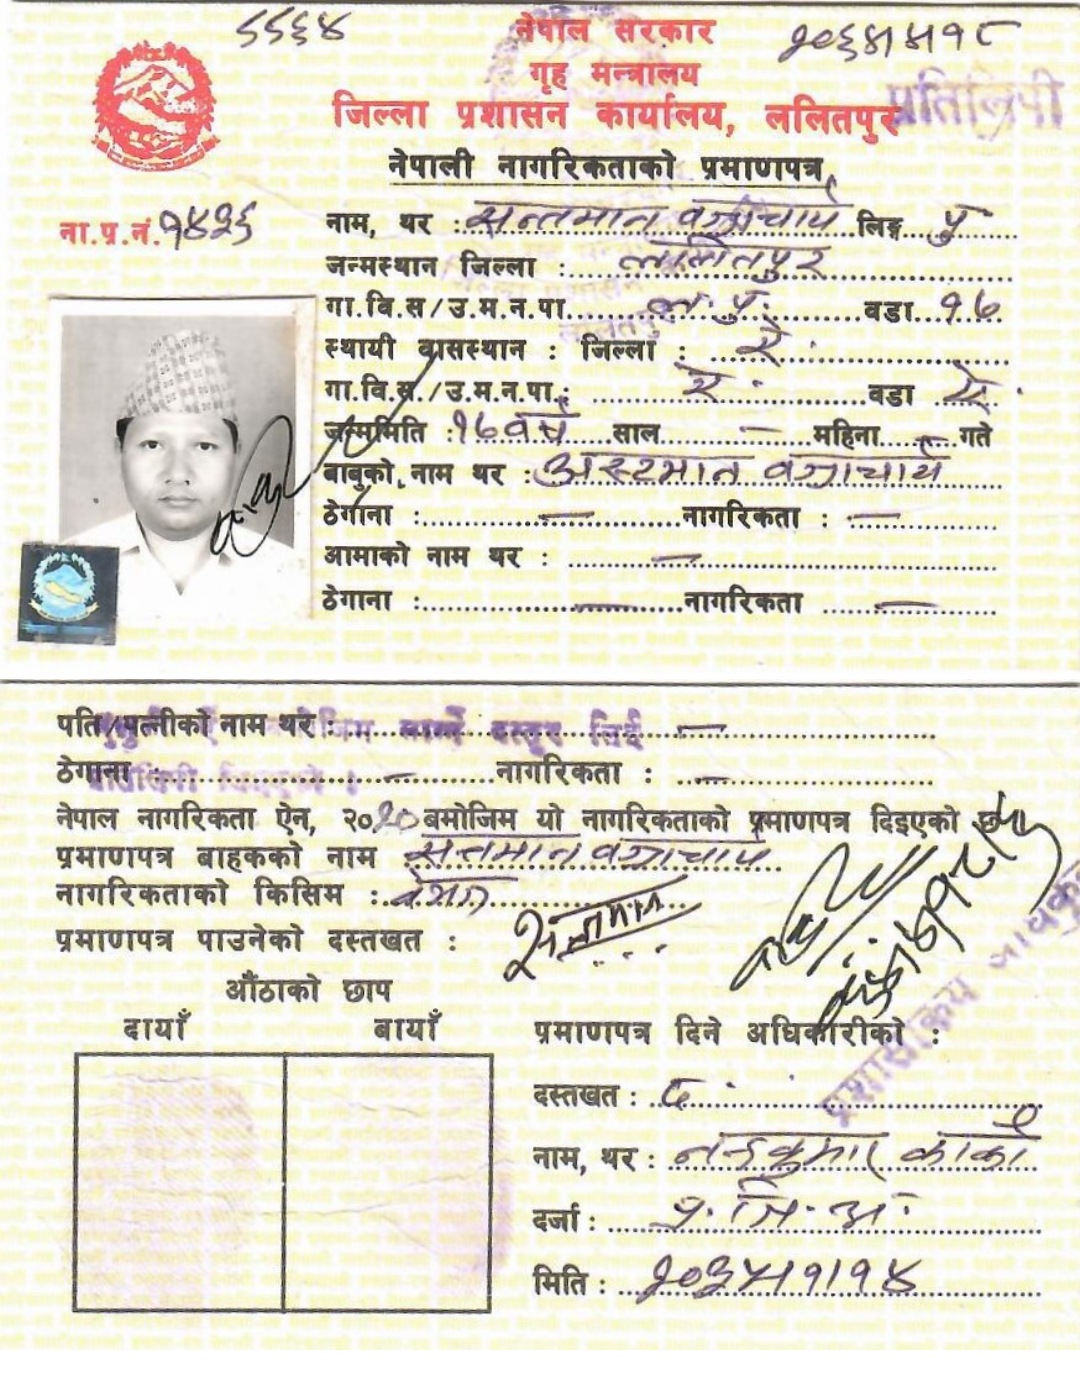 ५५६४
नेपाल सरकार
२०६४।४।१८
गृह मन्त्रालय
जिल्ला प्रशासन कार्यालय, ललितपुर
प्रतिलिपी
नेपाली नागरिकताको प्रमाणपत्र
ना.प्र.नं.
नाम, थर : सन्तमान वज्राचार्य लिङ्ग पु
जन्मस्थान जिल्ला : ललितपुर
गा.वि.स/उ.म.न.पा. ल. पु. वडा १७
स्थायी वासस्थान : जिल्ला : ऐ
गा.वि.स./उ.म.न.पा.: ऐ वडा ऐ
जन्ममिति : १७ वर्ष साल — महिना — गते
बाबुको नाम थर : वज्राचार्य
ठेगाना : — नागरिकता : —
आमाको नाम थर : —
ठेगाना : — नागरिकता —
पति/पत्नीको नाम थर : —
ठेगाना : — नागरिकता : —
नेपाल नागरिकता ऐन, २०२० बमोजिम यो नागरिकताको प्रमाणपत्र दिइएको छ।
प्रमाणपत्र बाहकको नाम सन्तमान वज्राचार्य
नागरिकताको किसिम : वंशज
प्रमाणपत्र पाउनेको दस्तखत : सन्तमान
औंठाको छाप
दायाँ बायाँ
प्रमाणपत्र दिने अधिकारीको :
दस्तखत : द.
नाम, थर : कार्की
दर्जा : प्र. जि. अ.
मिति : २०३५।१।१४